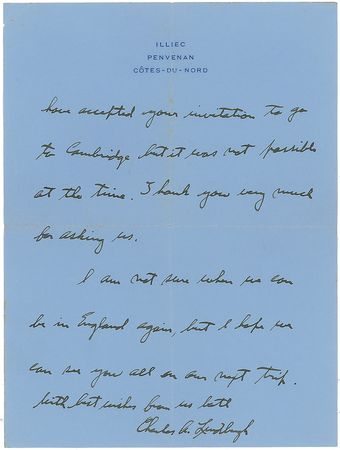 ILLIEC
PENVENAN
CÔTES-DU-NORD
have accepted your invitation to go
to Cambridge but it was not possible
at the time. Thank you very much
for asking us.
I am not sure when we can
be in England again, but I hope we
can see you all on our next trip.
With best wishes from us both
Charles A. Lindbergh